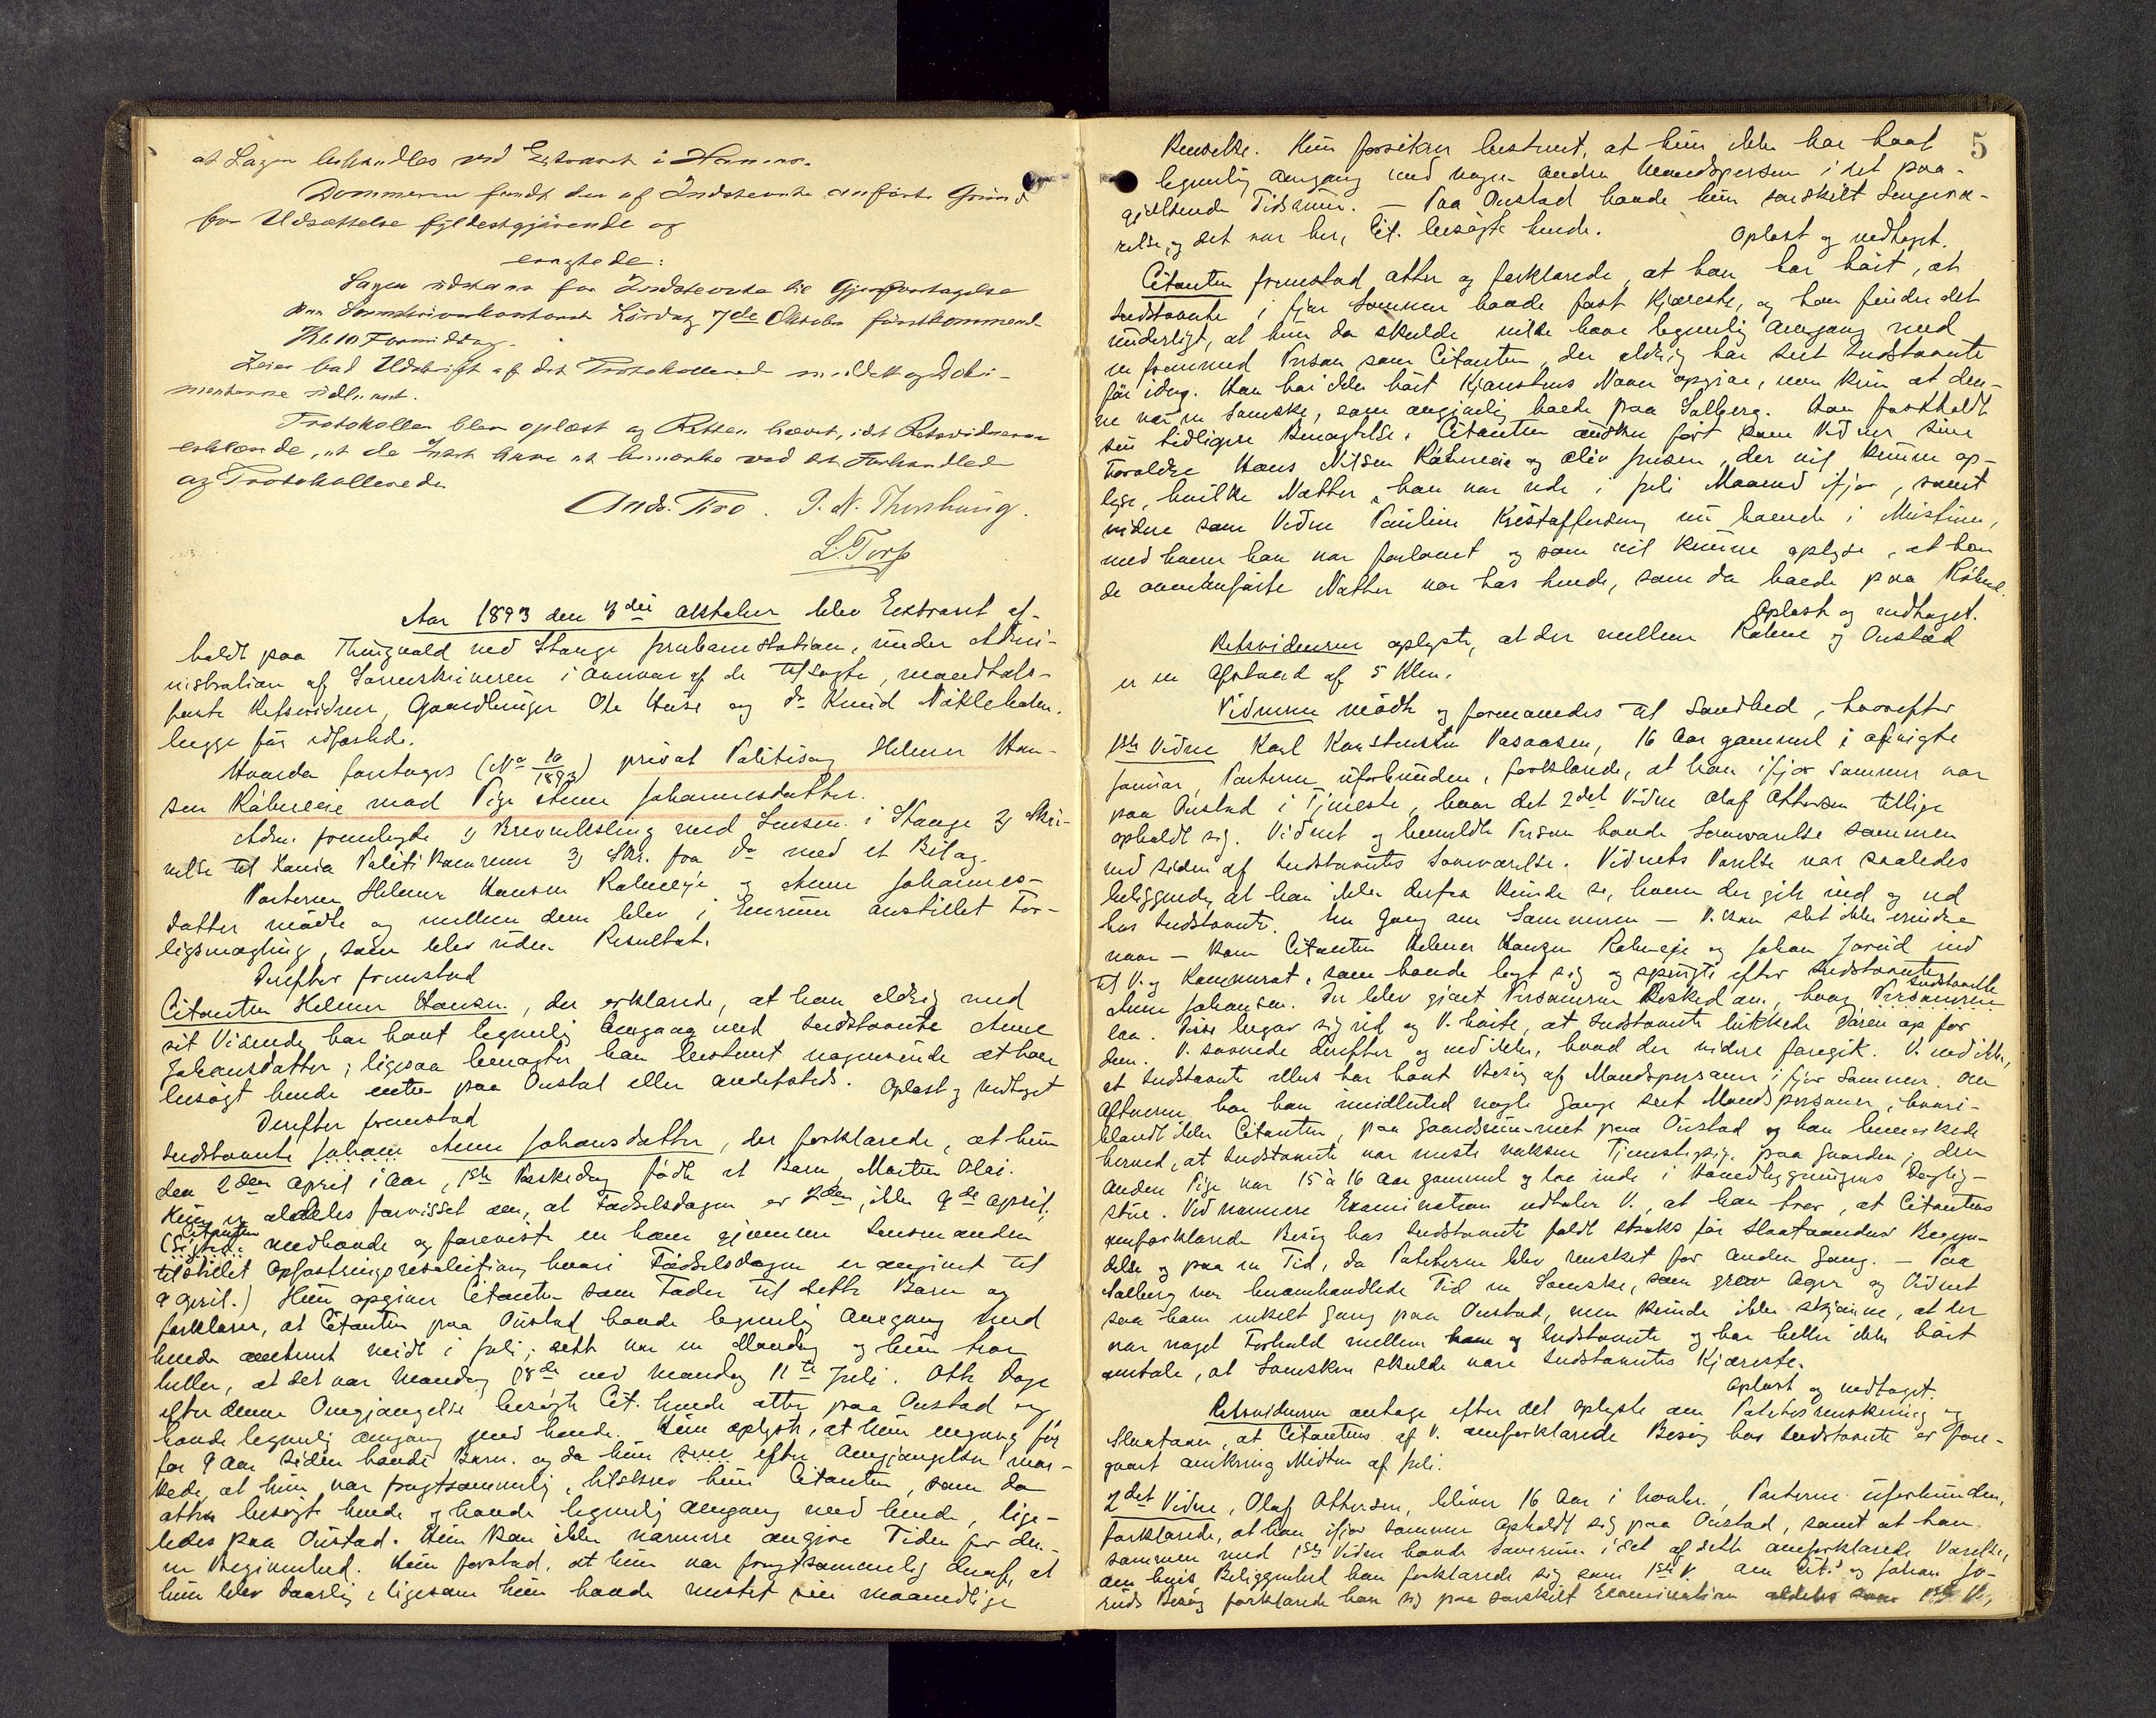 at Sagen behandles ved Extraret i Hamar.
Dommeren fandt den af Indstevnte anførte Grund
for Udsættelse fyldestgjørende og
eragtede:
Sagen udsættes for Indstevnte til Gjenforetagelse
paa Sorenskriverkontoret Lørdag 7de Oktober førstkommende
Kl. 10 Formiddag.
bad Udskrift af det Protokollerede meddelt og Doku-
menterne udlaant.
Protokollen blev oplæst og Retten hævet, idet Retsvidnerne
erklærede, at de Intet have at bemærke ved det Forhandlede
og Protokollerede
Ands. Tiro. P. N. Thorshaug.
L. Torp
Aar 1893 den 3die Oktober blev Extraret af-
holdt paa Thingvold ved Stange Jernbanestation, under Admi-
nistration af Sorenskriveren i Overvær af de tilsagte, mandtals-
førte Retsvidner, Gaardbruger Ole Huse og do Knud Nökleholm.
begge før edfæstede.
Hvorda foretoges (No 10/1893) privat Politisag Helmer Han-
sen Råbneeie mod Pige Anne Johannesdatter.
Adm. fremlagde 1) Brevvexling med Lensm. i Stange 2) Skri-
velse til Vania Politikammer 3) Skr. fra do med et Bilag.
Parterne Helmer Hansen Rabneeje og Anne Johannes-
datter mødte og mellem dem blev i Enrum anstillet For-
ligsmægling, som blev uden Resultat.
Derefter fremstod
Citanten Helmer Hansen, der erklærede, at han aldrig med
sit Vidende har havt legemlig Omgang med Indstævnte Anne
Johansdatter; ligesaa benægter han bestemt nogensinde at have
besøgt hende enten paa Onstad eller andetsteds. Oplæst og vedtaget
Derefter fremstod
Indstævnte Johan Anne Johansdatter, der forklarede, at hun
den 2den April i Aar, 1ste Paaskedag födte et Barn, Martin Olai.
Hun er aldeles forvisset om, at Fødselsdagen er 2den, ikke 9de April,
(Sigtede Citanten medhavde og foreviste en ham gjennem Lensmanden
tilstillet Opfostringsresolution, hvori Fødselsdagen er angivet til
9 April.) Hun opgiver Citanten som Fader til dette Barn og
forklarer, at Citanten paa Onstad havde legemlig Omgang med
hende omtrent midt i Juli; dette var en Mandag og hun tror
heller, at det var Mandag 18de end Mandag 11te Juli. Otte Dage
efter denne Omgjængelse besøgte Cit. hende atter paa Onstad og
havde legemlig Omgang med hende. Hun oplyste, at hun engang før
for 9 Aar siden havde Barn. og da hun sine efter Omgjængelsen mær-
kede, at hun var frugtsommelig, tilskrev hun Citanten, som da
atter besøgte hende og havde legemlig Omgang med hende, lige-
ledes paa Onstad. Hun kan ikke nærmere angive Tiden for den-
ne Begivenhed. Hun forstod, at hun var frugtsommelig deraf, at
hun blev daarlig, ligesom hun havde mistet sin maanedlige
5
Renselse. Hun forsikrer bestemt, at hun ikke har havt
legemlig Omgang med nogen anden Mandsperson i det paa-
gjældende Tidsrum. — Paa Onstad havde hun særskilt Sengevæ-
relse, og det var her, Cit. besøgte hende. Oplæst og vedtaget.
Citanten fremstod atter og forklarede, at han har hørt, at
Indstævnte i fjor Sommer havde fast Kjæreste, og han finder det
underligt, at hun da skulde ville have legemlig Omgang med
en fremmed Person som Citanten, der aldrig har seet Indstævnte
før idag. Han har ikke hørt Kjærestens Navn opgive, men kun at den-
ne var en Svenske, som angivelig boede paa Solberg. Han fastholdt
sin tidligere Benægtelse. Citanten ønsker ført som Vidner sine
Forældre Hans Nilsen Råbneeie og Oliv Jensen, der vil kunne op-
lyse, hvilke Nætter han var ude i Juli Maaned ifjor, samt
videre som Vidne Pauline Kristoffersen, nu boende i Mustiun,
med hvem han var forlovet og som vil kunne oplyse, at han
de ovenanførte Nætter var hos hende, som da boede paa Råbne.
Oplæst og vedtaget.
Retsvidnerne oplyste, at der mellem Råbne og Onstad
er en Afstand af 5 Klm.
Vidnerne mødte og formanedes til Sandhed, hvorefter
1ste Vidne Karl Konstantin Vasaasen, 16 Aar gammel i afvigte
Januar, Parterne uforbunden, forklarede, at han ifjor Sommer var
paa Onstad i Tjeneste, hvor det 2det Vidne Olaf Ottersen tillige
opholdt sig. Vidnet og bemeldte Person havde Soveværelse sammen
ved Siden af Indstævntes Soveværelse. Vidnets Værelse var saaledes
beliggende, at han ikke derfra kunde se, hvem der gik ind og ud
hos Indstævnte. En Gang om Sommeren — V. kan slet ikke erindre
naar — kom Citanten Helmer Hansen Rabneeje og Johan Jorud ind
til V. og Kammerat, som havde lagt sig og spurgte efter Indstævnte
Anne Johansen. Der blev givet Personerne Besked om, hvor Personerne Indstævnte
laa. Disse begav sig ud og V. hørte, at Indstævnte lukkede Døren op for
dem. V. sovnede derefter og ved ikke, hvad der videre foregik. V. ved ikke,
at Indstævnte ellers har havt Besøg af Mandspersoner i fjor Sommer. Om
Aftnerne har han imidlertid nogle Gange seet Mandspersoner, hvori-
blandt ikke Citanten, paa Gaardsrummet paa Onstad og han bemærkede
herved, at Indstævnte var eneste voksne Tjenestepige paa Gaarden; den
anden Pige var 15 à 16 Aar gammel og laa inde i Hovedbygningens Daglig-
stue. Ved nærmere Examination udtaler V., at han tror, at Citantens
omforklarede Besøg hos Indstævnte faldt straks før Slaataannens Begyn-
delse og paa en Tid, da Poteterne blev rensket for anden Gang. — Paa
Solberg var paa omhandlede Tid en Svenske, som grov Ager og Vidnet
saa ham enkelt Gang paa Onstad, men kunde ikke skjønne, at der
var noget Forhold mellem ham og Indstævnte og har heller ikke hørt
omtale, at Svensken skulde være Indstævntes Kjæreste.
Oplæst og vedtaget.
Retsvidnerne antage efter det oplyste om Potetesrenskning og
Slaataan, at Citantens af V. omforklarede Besøg hos Indstævnte er fore-
gaaet omkring Midten af Juli.
2det Vidne, Olaf Ottersen, bliver 16 Aar i Novbr., Parterne uforbunden,
forklarede, at han ifjor Sommer opholdt sig paa Onstad, samt at han
sammen med 1ste Vidne havde Soverum i det af dette omforklarede Værelse,
om hvis Beliggenhed han forklarede sig som 1ste V. Om Cit.s og Johan Jo-
ruds Besøg forklarede han sig paa særskilt Examination aldeles som 1ste V.,